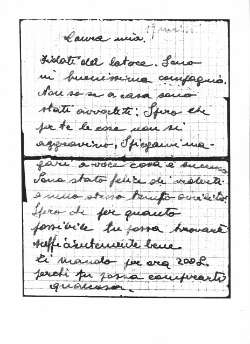 Laura mia,
Fidati del latore. Sono
in buonissima compagnia.
Non so se a casa sono
stati avvertiti. Spero che
per te le cose non si
aggravino. Spiegami ma-
gari a voce cosa è
Sono stato felice di vederti
e nello stesso tempo
Spero che per quanto
possibile tu possa trovarti
sufficientemente bene
Ti mando per ora 200 L.
perché tu possa comperarti
qualcosa.